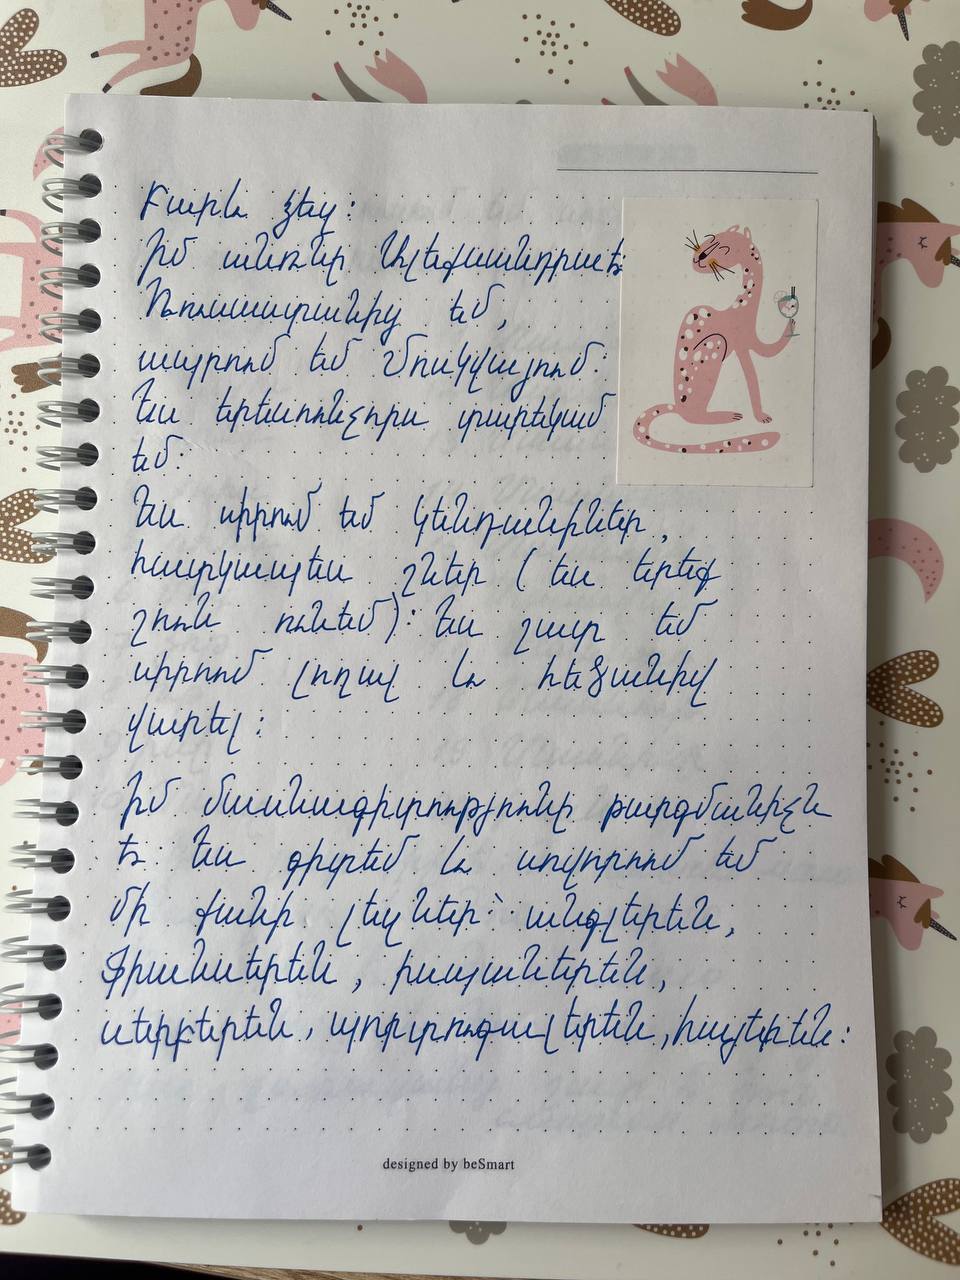 Բարև ձեզ:
Իմ անունը Ալեքսանդրա է:
Ռուսաստանից եմ,
ապրում եմ Մոսկվայում:
Ես երեսունչորս տարեկան
եմ:
Ես սիրում եմ կենդանիներ,
հատկապես շներ (ես երեք
շուն ունեմ): Ես շատ եմ
սիրում լողալ և հեծանիվ
վարել:
Իմ մասնագիտությունը թարգմանիչն
է: Ես գիտեմ և սովորում եմ
մի քանի լեզներ՝ անգլերեն,
ֆրանսերեն, իսպաներեն,
սերբերեն, պորտուգալերեն, հայերեն:
designed by beSmart